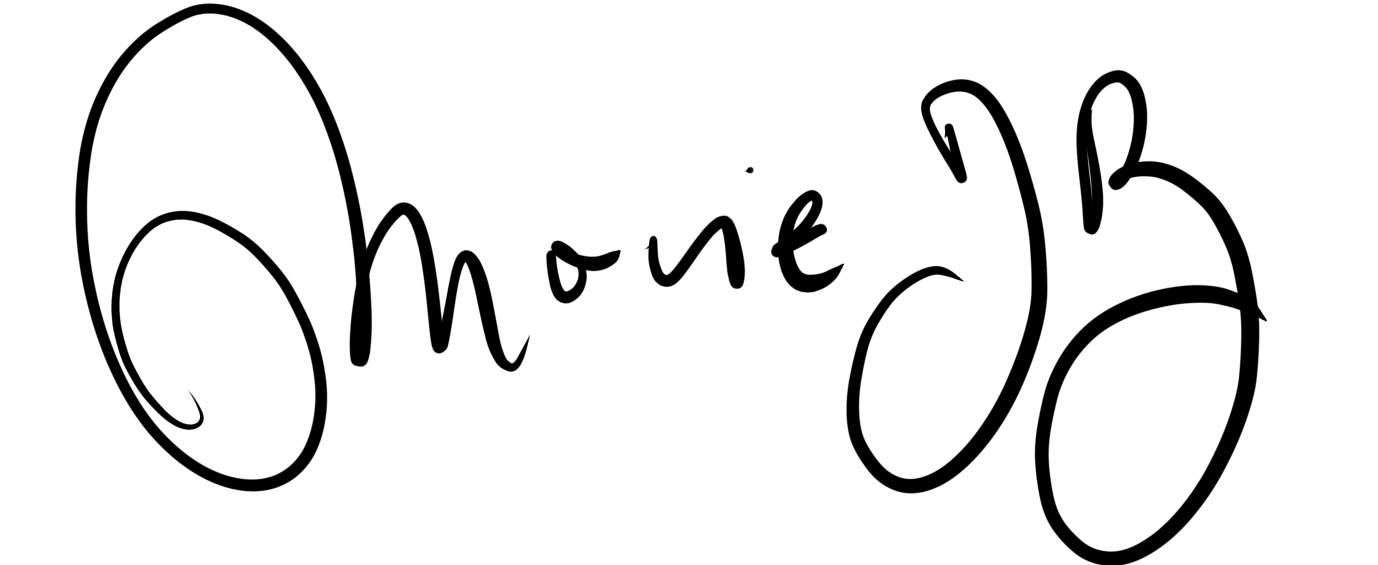 Marie JB